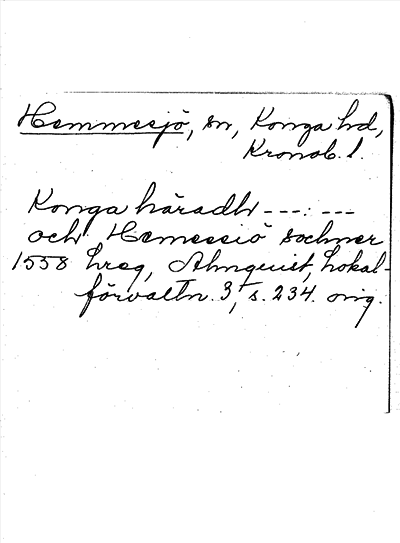 Hemmesjö, sn, Konga hd,
Kronob. l.
Konga häradh ---:---
och Hemessiö sochner
1558 hreg, Almquist, Lokal-
förvaltn. 3, s. 234. orig.